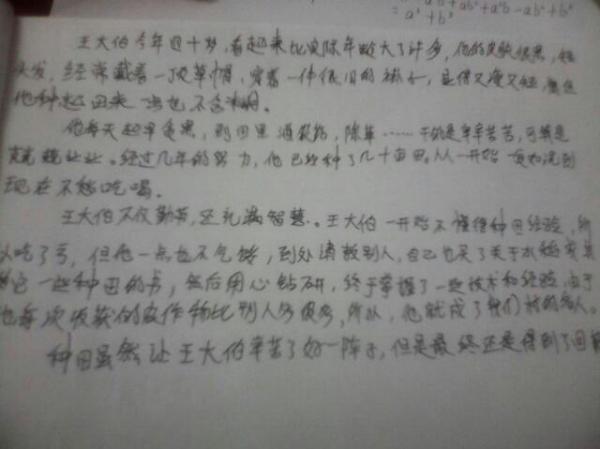 a²b + ab² + a²b - ab² + b³
= a³ + b³
王大伯今年四十岁,看起来比实际年龄大了许多,他的皮肤很黑,短
头发,经常戴着一顶草帽,穿着一件很旧的褂子,显得又瘦又短,但是
他种起田来 也不含糊。
他每天起早贪黑,到田里洒农药,除草……干的是辛辛苦苦,可算是
兢兢业业。经过几年的努力,他已经种了几十亩田,从一开始 到
现在不愁吃喝。
王大伯不仅勤劳,还充满智慧。王大伯一开始不懂得种田经验,所
以吃了亏,但他一点也不气馁,到处请教别人,自己也买了关于水稻
一些种田的书,然后用心钻研,终于掌握了一些技术和经验,由于
他每次收获的农作物比别人多很多,所以,他就成了我们村的名人。
种田虽然让王大伯辛苦了好一阵子,但是最终还是得到了回报